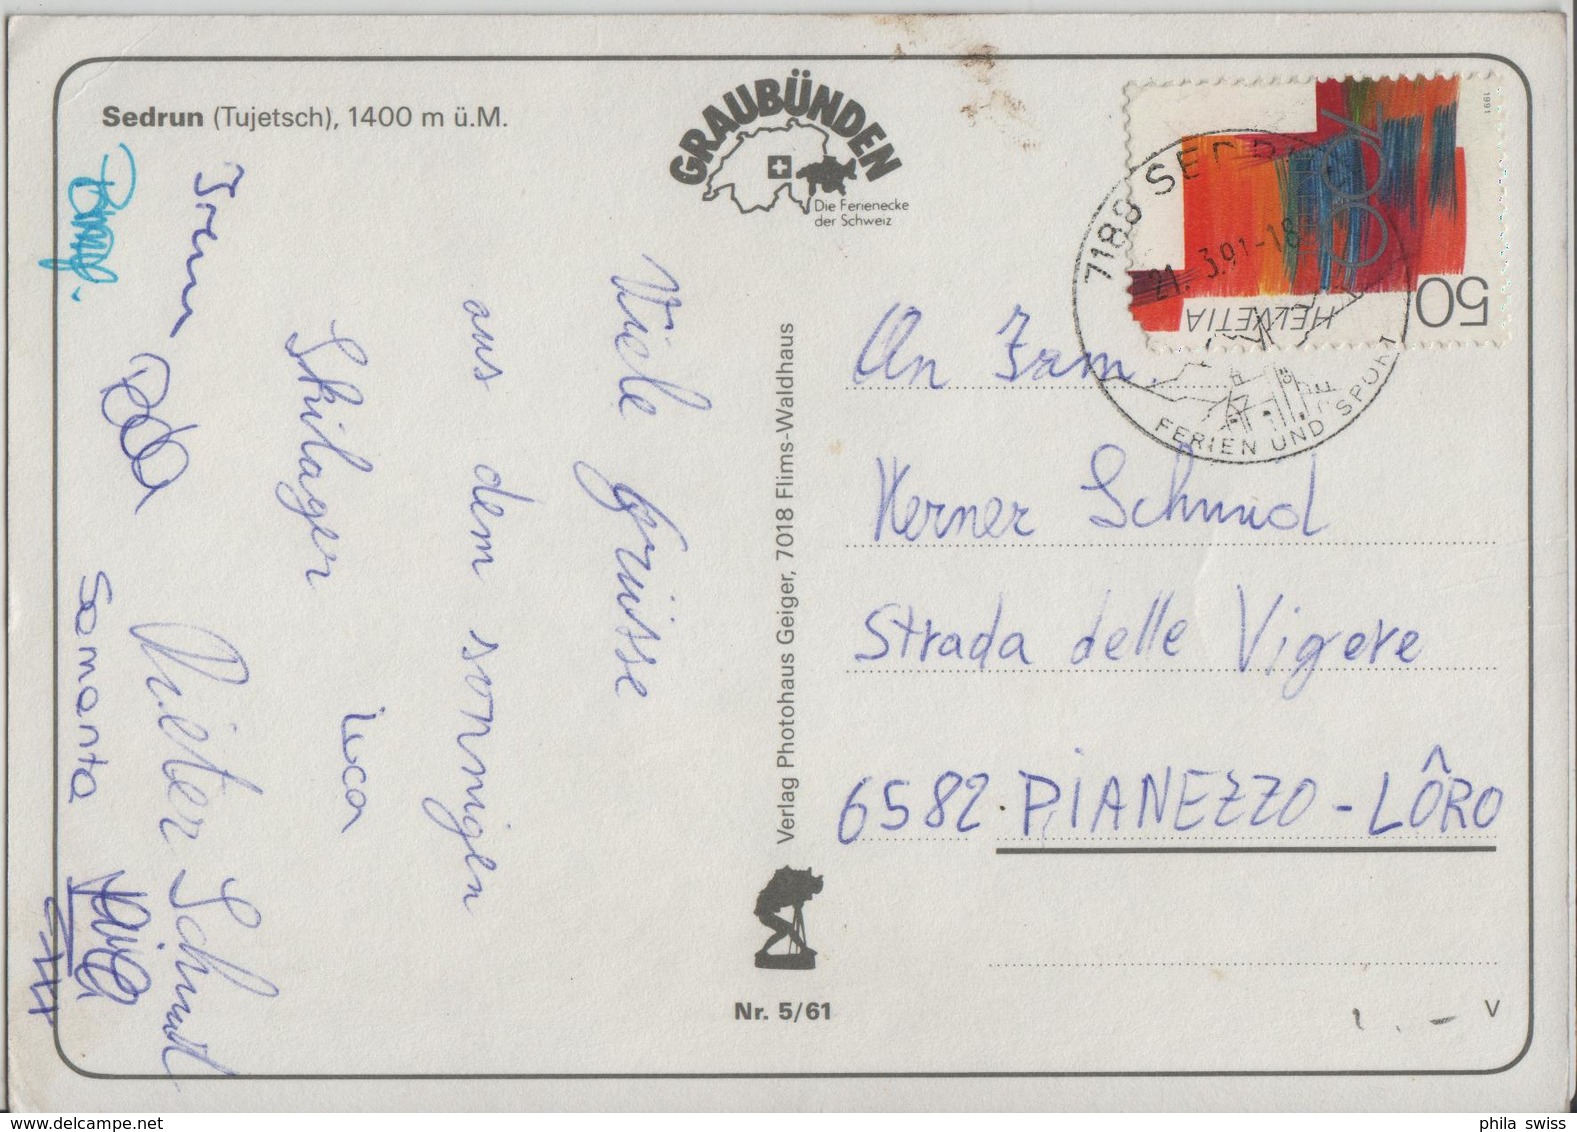 Sedrun (Tujetsch), 1400 m ü.M.
GRAUBÜNDEN
Die Ferienecke
der Schweiz
Viele Grüsse
aus dem sonnigen
Skilager
Luca
Irene
Dieter Schmid
Samanta
Verlag Photohaus Geiger, 7018 Flims-Waldhaus
Nr. 5/61
1991
50
HELVETIA
7188 SEDRUN
21. 3.91-18
FERIEN UND SPORT
An Fam.
Werner Schmid
Strada delle Vigere
6582 PIANEZZO - LÔRO
V
phila swiss